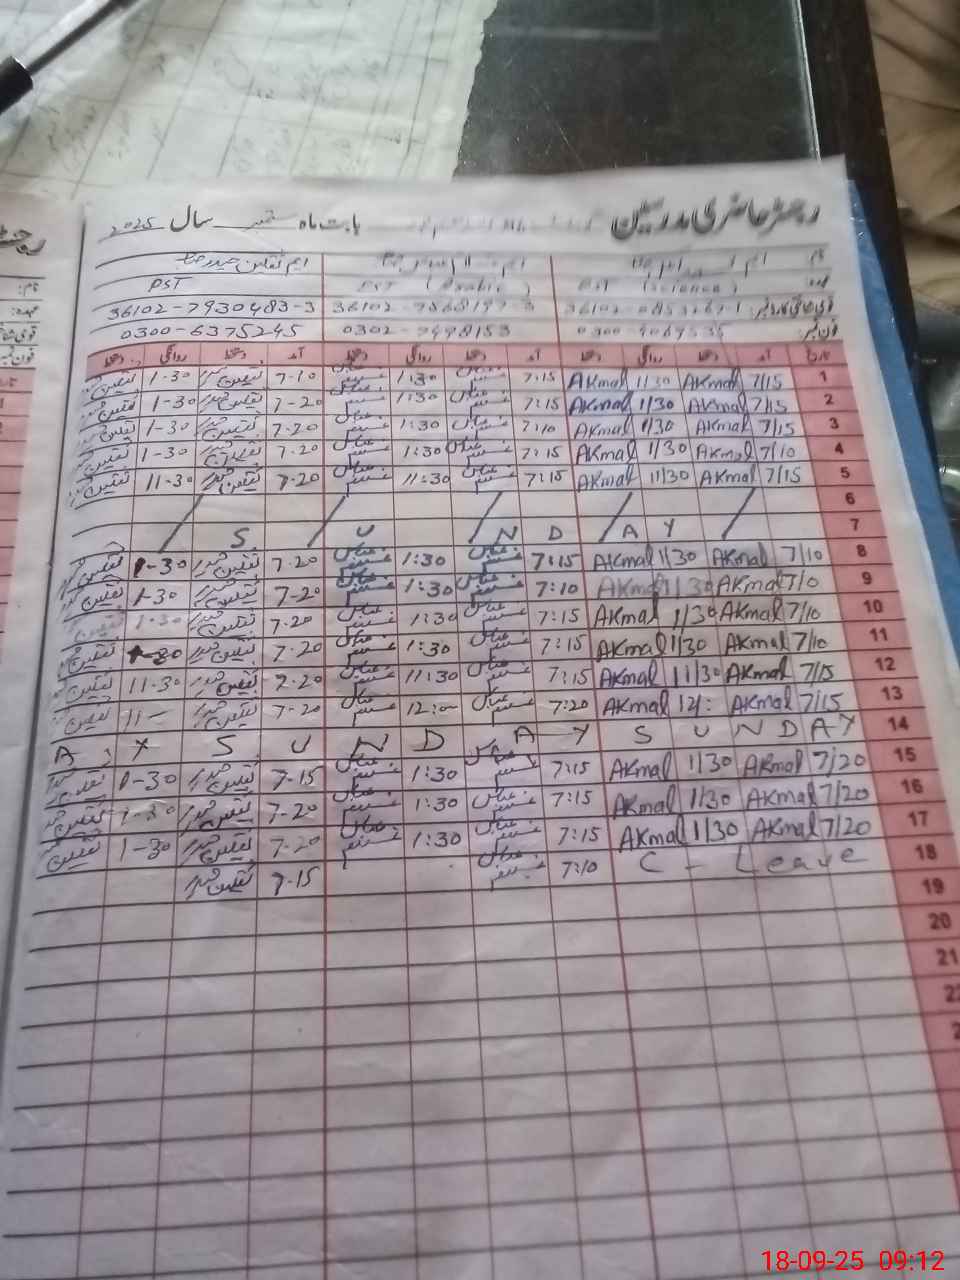 رجسٹر حاضری مدرسین بابت ماہ ستمبر سال 2025
نام:
عہدہ: EST (Science) EST (Arabic) PST
قومی شناختی کارڈ نمبر: 36102-7930483-3
فون نمبر: 0302-7498153 0300-6375245
تاریخ آمد دستخط روانگی دستخط آمد دستخط روانگی دستخط آمد دستخط روانگی دستخط
1 7/15 AKmal 1/30 AKmal 7:15 عباس 1:30 عباس 7-10 ثقلین حیدر 1-30 ثقلین
2 7/15 AKmal 1/30 AKmal 7:15 عباس 1:30 عباس 7-20 ثقلین حیدر 1-30 ثقلین
3 7/15 AKmal 1/30 AKmal 7:10 عباس 1:30 عباس 7-20 ثقلین حیدر 1-30 ثقلین
4 7/10 AKmal 1/30 AKmal 7:15 عباس 1:30 عباس 7-20 ثقلین حیدر 1-30 ثقلین
5 7/15 AKmal 11/30 AKmal 7:15 عباس 11:30 عباس 7-20 ثقلین حیدر 11-30 ثقلین
6
7 S U N D A Y
8 7/10 AKmal 1/30 AKmal 7:15 عباس 1:30 عباس 7-20 ثقلین حیدر 1-30 ثقلین
9 7/10 AKmal 1/30 AKmal 7:10 عباس 1:30 عباس 7-20 ثقلین حیدر 1-30 ثقلین
10 7/10 AKmal 1/30 AKmal 7:15 عباس 1:30 عباس 7-20 ثقلین حیدر 1-30 ثقلین
11 7/10 AKmal 1/30 AKmal 7:15 عباس 1:30 عباس 7-20 ثقلین حیدر 1-30 ثقلین
12 7/15 AKmal 11/30 AKmal 7:15 عباس 11:30 عباس 7-20 ثقلین حیدر 11-30 ثقلین
13 7/15 AKmal 12/: AKmal 7:20 عباس 12:00 عباس 7-20 ثقلین حیدر 11- ثقلین
14 A Y S U N D A Y S U N D A Y
15 7/20 AKmal 1/30 AKmal 7:15 عباس 1:30 عباس 7-15 ثقلین حیدر 1-30 ثقلین
16 7/20 AKmal 1/30 AKmal 7:15 عباس 1:30 عباس 7-20 ثقلین حیدر 1-30 ثقلین
17 7/20 AKmal 1/30 AKmal 7:15 عباس 1:30 عباس 7-20 ثقلین حیدر 1-30 ثقلین
18 C - Leave 7:10 عباس 7-15 ثقلین حیدر
19
20
21
22
18-09-25 09:12